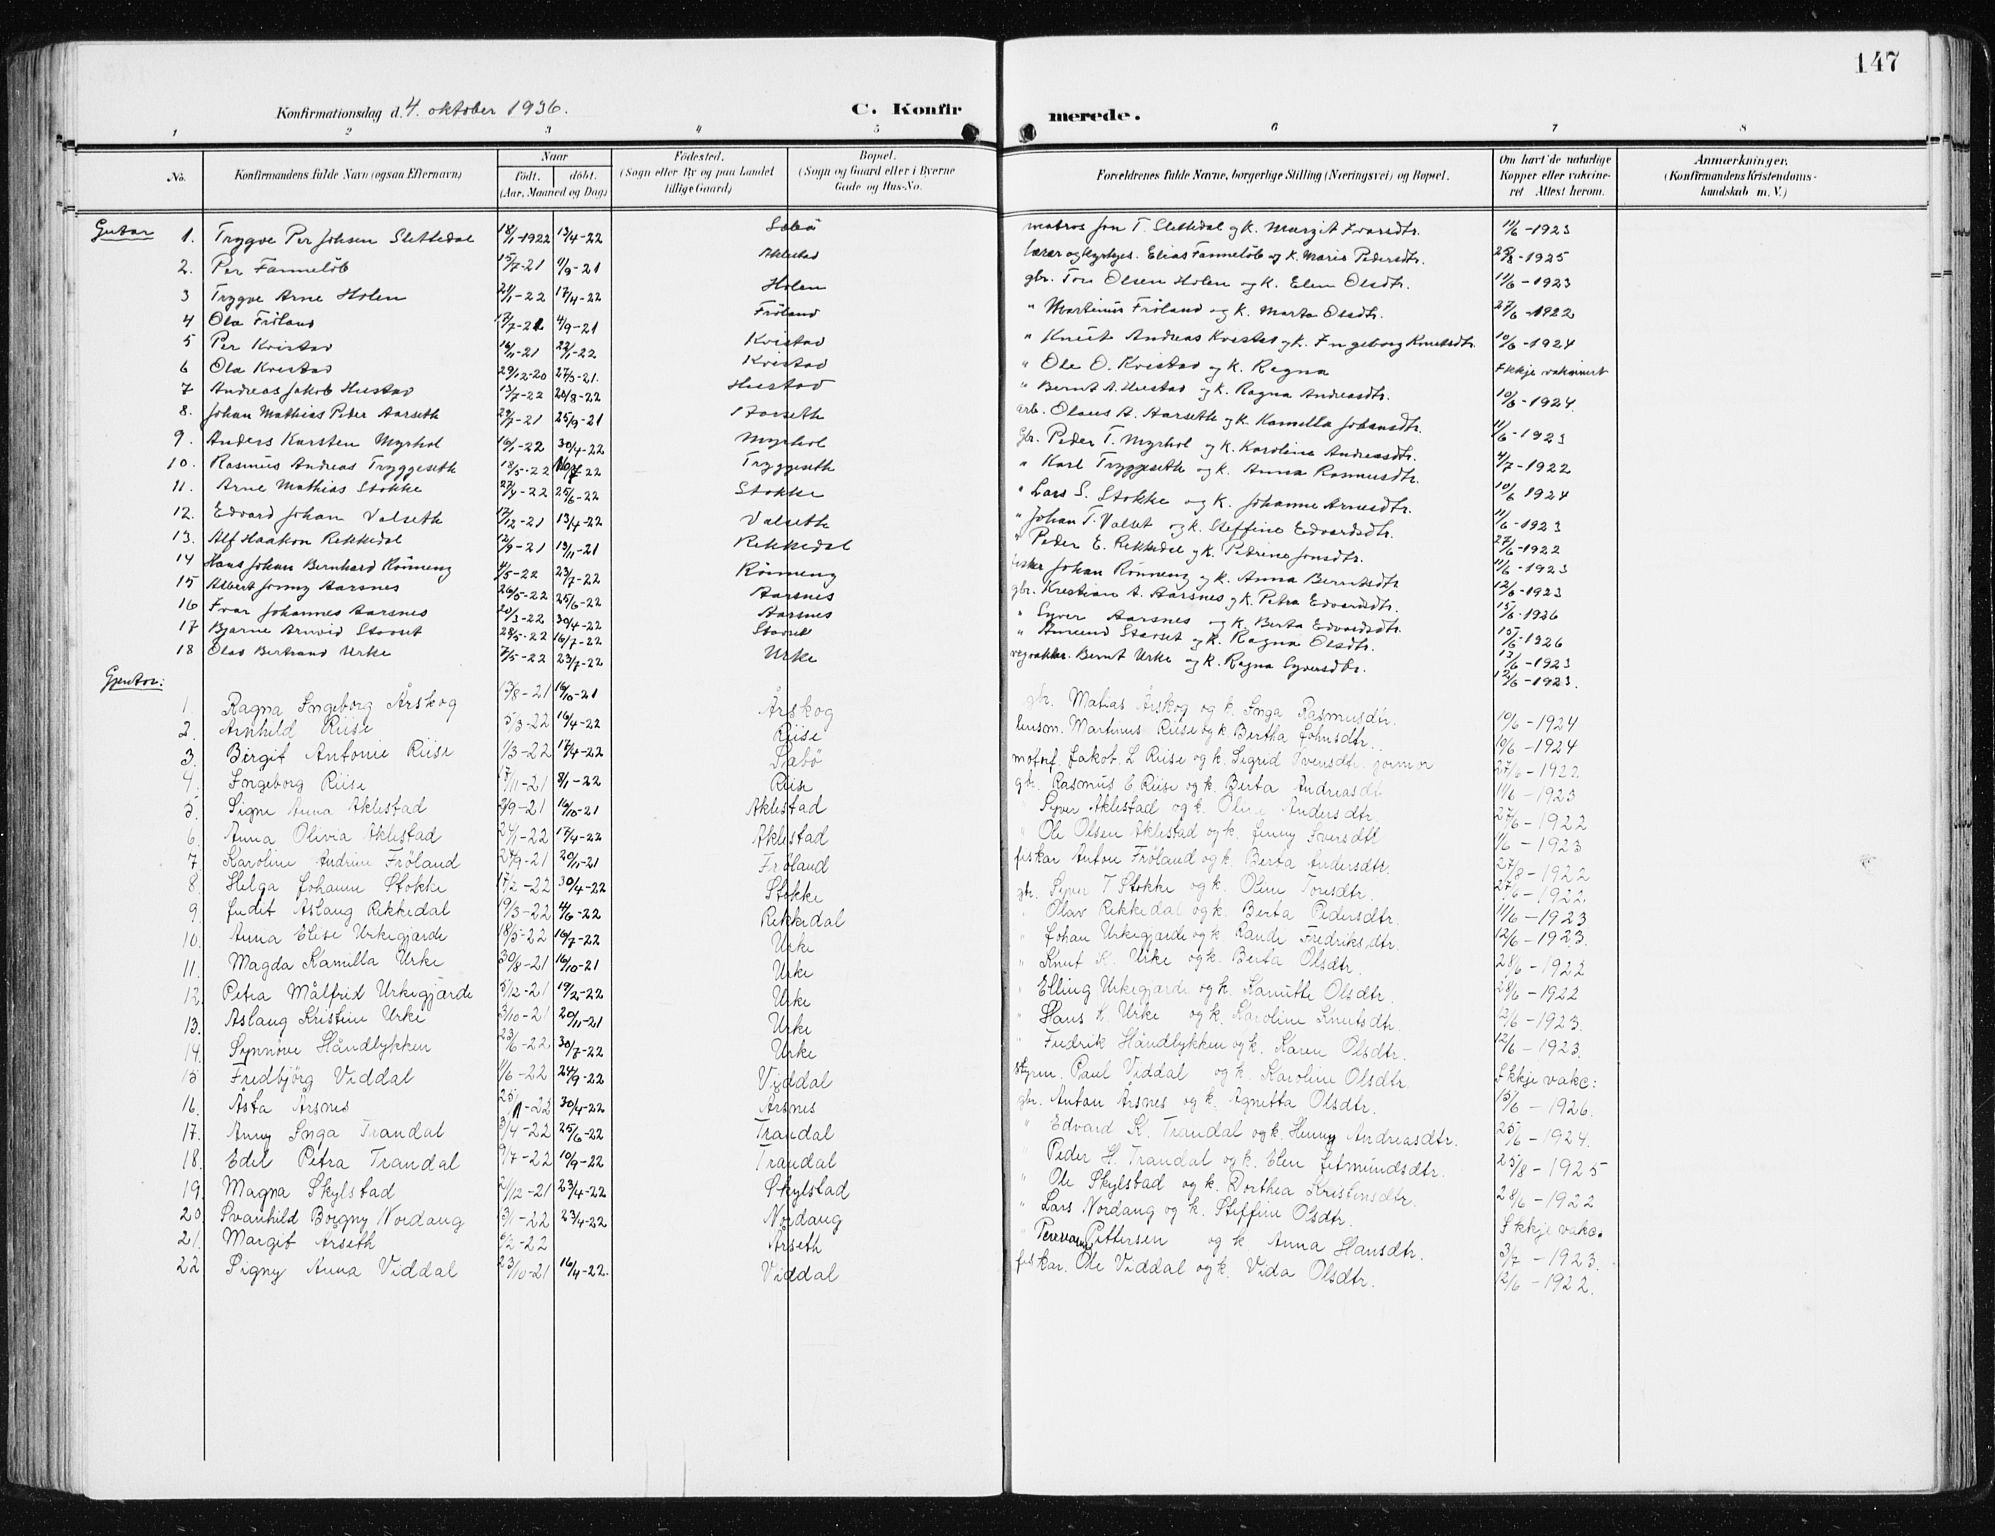 147
Konfirmationsdag d. 4. oktober 1936. C. Konfirmerede.
1 2 3 4 5 6 7 8
No. Konfirmandens fulde Navn (ogsaa Efternavn) Naar født. døbt. (Aar, Maaned og Dag) Fødested. (Sogn eller By og paa Landet tillige Gaard) Bopæl. (Sogn og Gaard eller i Byerne Gade og Hus-No. Forældrenes fulde Navne, borgerlige Stilling (Næringsvei) og Bopæl. Om havt de naturlige Kopper eller vaksineret Attest herom. Anmærkninger. (Konfirmandens Kristendomskundskab m. V.)
Gutar
1. Trygve Per Johsen Slettedal 18/1-1922 13/4-22 Sæbø matros Jon T. Slettedal og k. Margit Ivarsdtr. 11/6-1923
2. Per Fanneløb 15/7-21 4/9-21 Aklestad lærar og kyrkjes. Elias Fanneløb og k. Maris Pedersdtr. 25/8-1925
3 Trygve Arne Holen 21/1-22 17/4-22 Holen gbr. Tore Olsen Holen og k. Elen Olsdtr. 11/6-1923
4 Ola Frøland 17/7-21 4/9-21 Frøland " Martinus Frøland og k. Marta Olsdtr. 27/6-1922
5 Per Kvistad 16/11-21 22/1-22 Kvistad " Knut Andreas Kvistad og k. Ingeborg Knutsdtr. 10/6-1924
6 Ola Kvistad 29/12-20 27/3-21. Kvistad " Ole O. Kvistad og k. Ragna Ikkje vaksinert
7 Andreas Jakob Hustad 13/7-22 20/8-22 Hustad " Bernt A. Hustad og k. Ragna Andreasdtr. 10/6-1924.
8. Johan Mathias Peter Aarseth 29/7-21 25/9-21 Aarseth arb. Olaus A. Aarseth og k. Kamilla Johansdtr. 11/6-1923
9. Anders Karsten Myrhol 16/1-22 30/4-22 Myrhol gbr. Peder T. Myrhol og k. Karoline Andreasdtr. 4/7-1922
10. Rasmus Andreas Tryggeseth 18/5-22 16/7-22 Tryggeseth " Karl Tryggeseth og k. Anna Rasmusdtr. 10/6 1924
11. Arne Mathias Stokke 27/4-22 25/6-22 Stokke " Lars S. Stokke og k. Johanne Arnesdtr. 11/6-1923
12. Edvard Johan Valseth 17/12-21 13/4-22 Valseth " Johan T. Valset og k. Steffine Edvardsdtr. 27/6-1922
13. Alf Haakon Rekkedal 12/9-21 13/11-21 Rekkedal " Peder E. Rekkedal og k. Petrine Jonsdtr. 11/6-1923
14 Hans Johan Bernhard Rønneng 4/5-22 23/7-22 Rønneng fisker Johan Rønneng og k. Anna Berntsdtr 12/6-1923
15 Albert Jonny Aarsnes 26/5-22 25/6-22 Aarsnes gbr. Kristian A. Aarsnes og k. Petra Edvardsdtr. 15/6-1926
16 Ivar Johannes Aarsnes 20/3-22 30/4-22 Aarsnes " Syver Aarsnes og k. Berta Edvardsdtr. 15/6-1926
17 Bjarne Arnvid Stavset 28/5-22 16/7-22 Stavset " Amund Stavset og k. Ragna Olsdtr. 13/6-1923
18 Olav Bertrand Urke 7/5-22 23/7-22 Urke vegvaktar. Bernt Urke og k. Ragna Syversdtr. 12/6-1923.
Gjentor:
1. Ragna Ingeborg Årskog 13/8-21 16/10-21 Årskog gbr. Matias Årskog og k. Inga Rasmusdtr. 10/6-1924
2. Arnhild Riise 5/3-22 16/4-22 Riise lensm. Martinus Riise og k. Bertha Johnsdtr. 10/6-1924
3. Birgit Antonie Riise 1/3-22 17/4-22 Sæbø motorf. Jakob L Riise og k. Sigrid Ivensdtr. jormor 27/6-1922
4. Ingeborg Riise 17/11-21 8/1-22 Riise gbr. Rasmus E Riise og k. Berta Andreasdt 11/6-1923
5. Signe Anna Aklestad 2/9-21 16/10-21 Aklestad " Syver Aklestad og k. Oline Andersdtr. 27/6-1922
6. Anna Olivia Aklestad 21/1-22 17/4-22 Aklestad " Ole Olsen Aklestad og k. Jenny Iversdtr 11/6-1923
7 Karoline Andrine Frøland 24/9-21 20/11-21 Frøland fiskar Anton Frøland og k. Berta Andersdtr. 27/8-1922
8. Helga Johanne Stokke 17/2-22 30/4-22 Stokke gbr. Syver T Stokke og k. Oline Toresdtr. 27/6-1922
9. Judit Aslaug Rekkedal 19/3-22 4/6-22 Rekkedal " Olav Rekkedal og k. Berta Pedersdtr. 11/6-1923
10. Anna Elise Urkegjærde 18/5-22 16/7-22 Urke " Johan Urkegjærde og k. Rande Fredriksdtr. 12/6-1923.
11. Magda Kamilla Urke 30/8-21 16/10-21 Urke " Knut K. Urke og k. Berta Olsdtr. 28/6-1922
12. Petra Målfrid Urkegjærde 5/12-21 19/2-22 Urke " Elling Urkegjærde og k. Kanutte Olsdtr. 28/6-1922
13. Aslaug Kristine Urke 3/10-21 20/11-21 Urke " Hans K. Urke og k. Karoline Knutsdtr. 12/6-1923.
14. Synnøve Håndlykken 23/6-22 30/7-22 Urke " Fredrik Håndlykken og k. Karen Olsdtr. 12/6-1923.
15 Fredbjørg Viddal 11/6-22 24/9-22 Viddal styrm. Paul Viddal og k. Karoline Olsdtr. Ikkje vakc:
16. Åsta Årsnes 25/1-22 30/4-22 Årsnes gbr. Anton Årsnes og k. Agnetta Olsdtr. 15/6-1926.
17. Anny Inga Trandal 3/4-22 25/6-22 Trandal " Edvard K. Trandal og k. Henny Andreasdtr. 25/6-1924.
18. Edel Petra Trandal 9/7-22 10/9-22 Trandal " Peder H. Trandal og k. Elen Jetmundsdtr. 25/8-1925
19. Magna Skylstad 21/12-21 23/4-22 Skylstad " Ole Skylstad og k. Dorthea Kristensdtr. 28/6-1922
20. Svanhild Borgny Nordang 3/1-22 23/4-22 Nordang " Lars Nordang og k. Steffine Olsdtr. Ikkje vakc.
21. Margit Årseth 6/2-22 Årseth Pettersen og k Anna Hansdtr. 3/7-1923.
22 Signy Anna Viddal 23/10-21 16/4-22. Viddal fiskar. Ole Viddal og k. Vida Olsdtr. 12/6-1922.